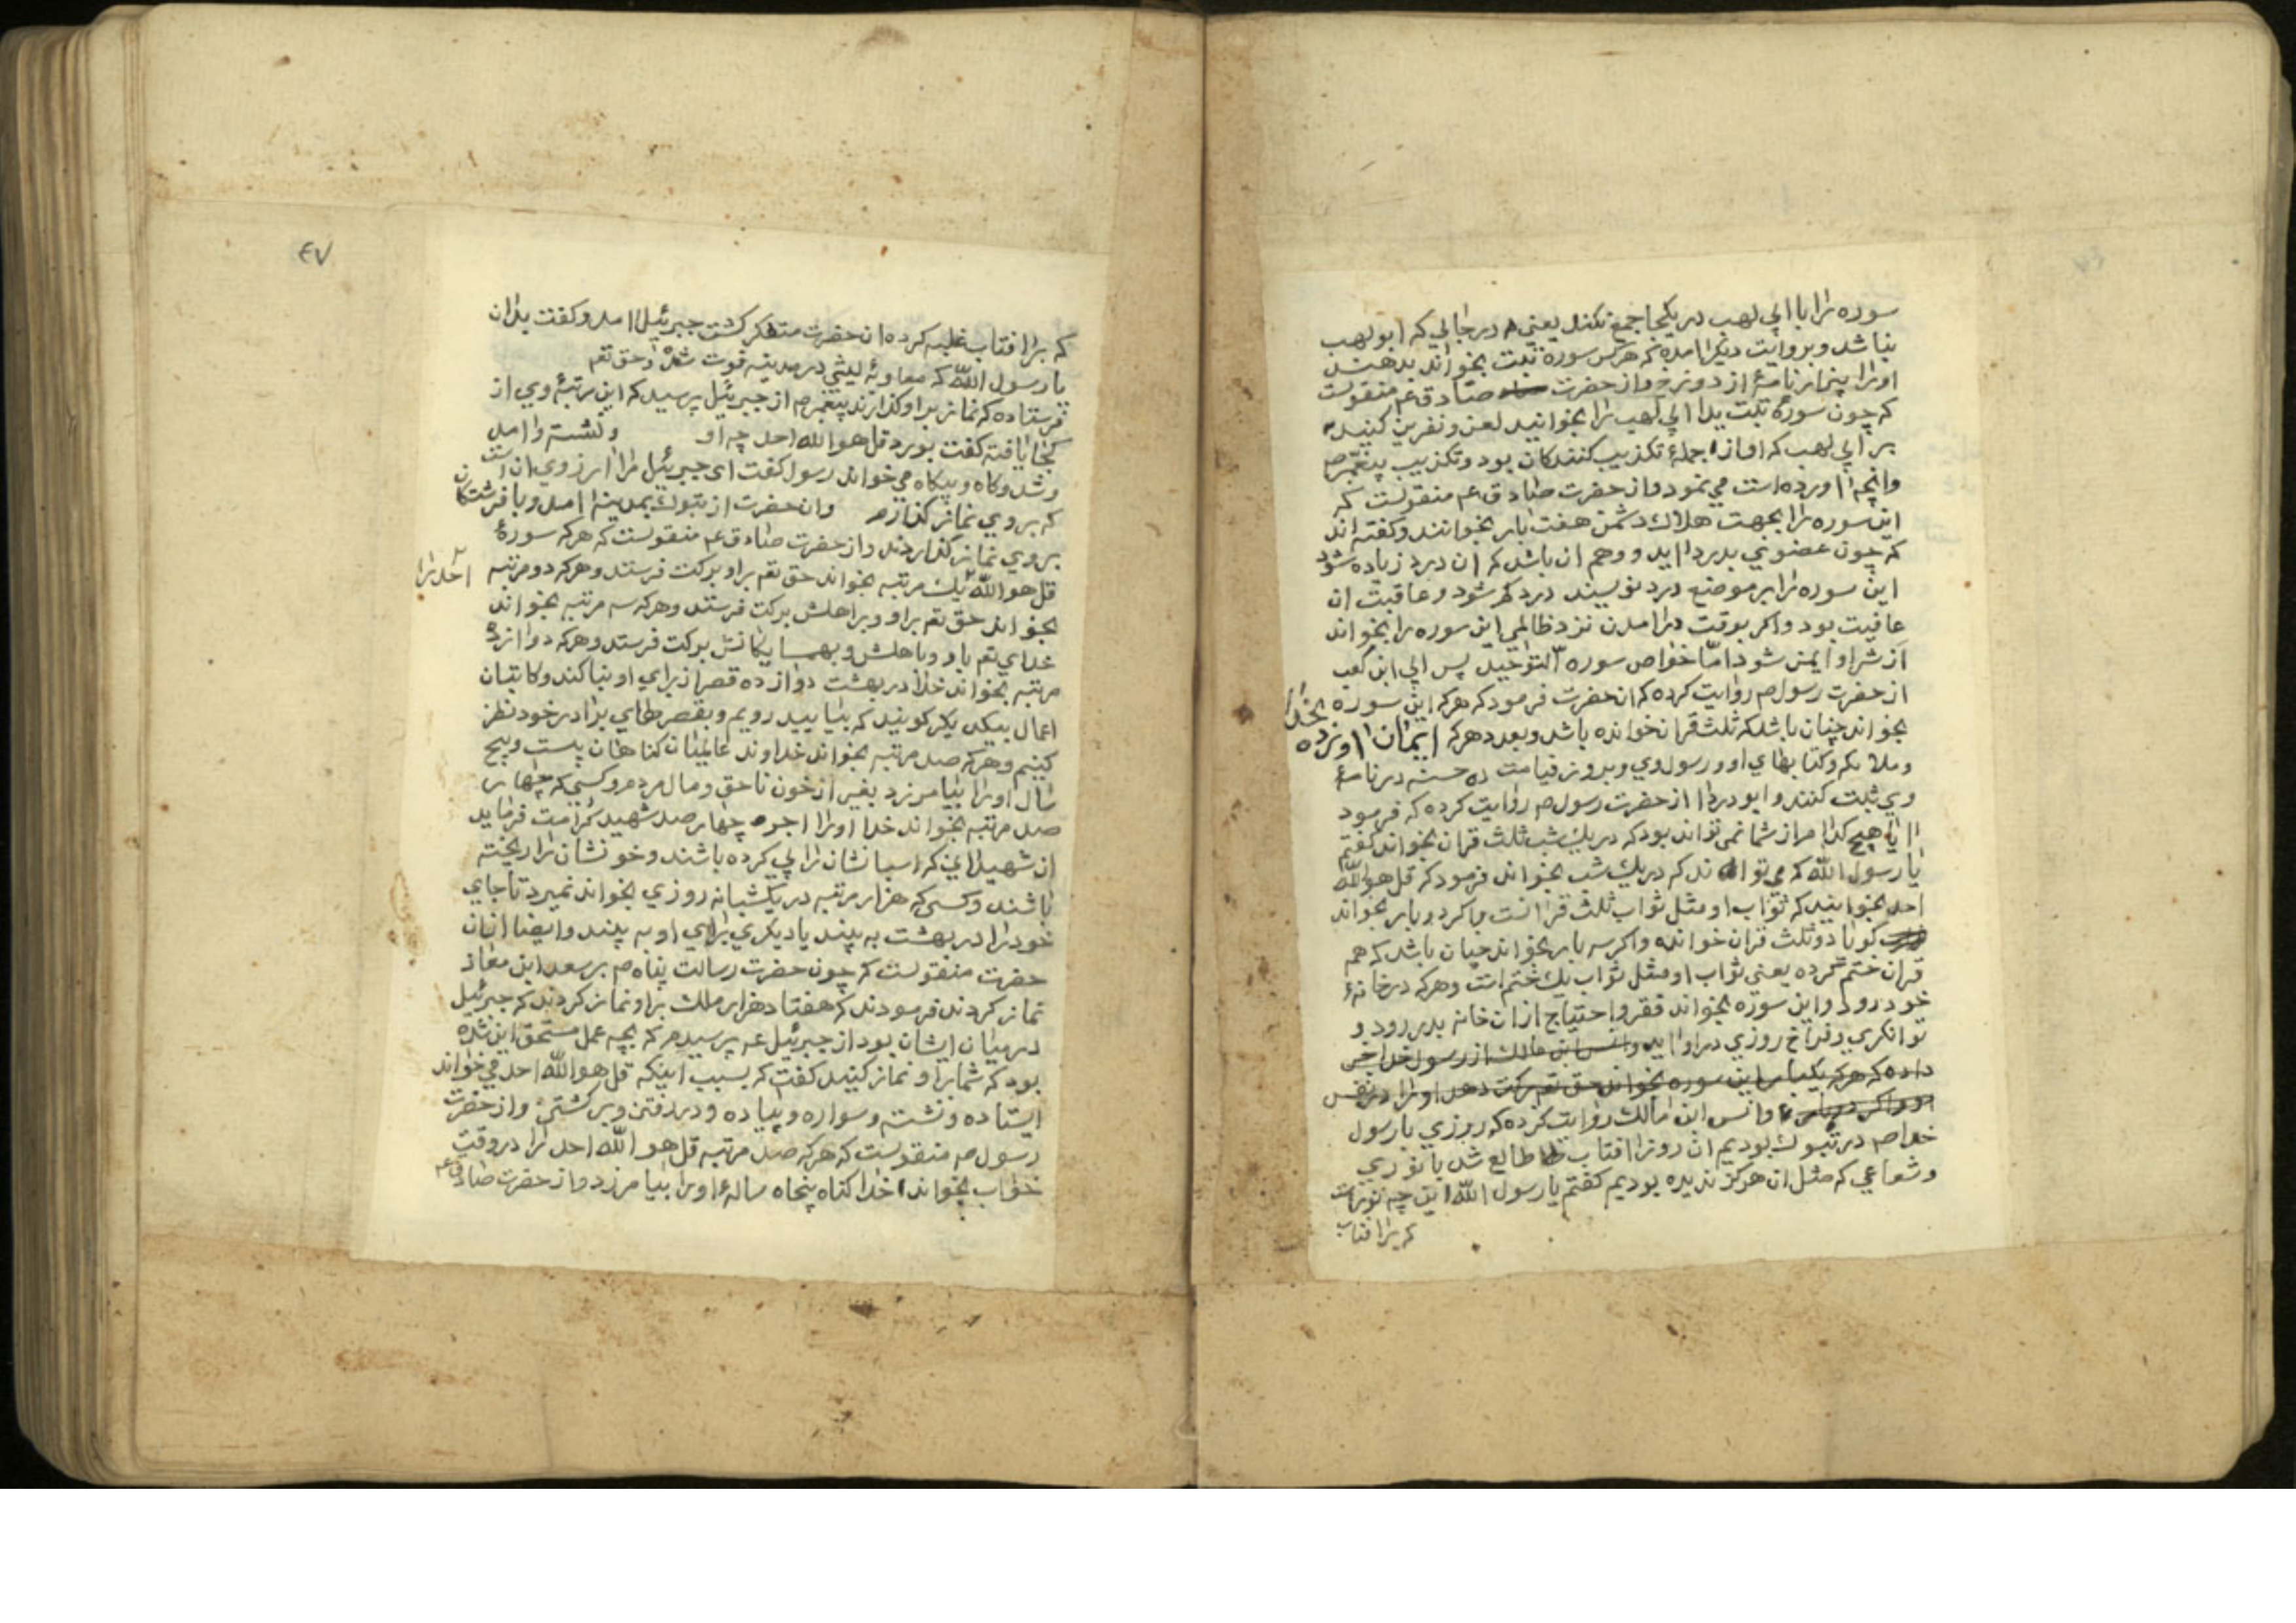 سوره را با ابی لهب در یکجا جمع نکند یعنی در جایی که ابو لهب
نباشد و بروایت دیگر امده که هرکس سوره تبت بخواند بدهند
او را پنمازنامهٔ از دوزخ و از حضرت صادق عم منقولست
که چون سورهٔ تبت یدا ابی لهب را بخوانید لعن و نفرین کنید
بر ابی لهب که او از جملهٔ تکذیب کنندکان بود و تکذیب پیغمبر ص
وانچه اورده است می نمود و از حضرت صادق عم منقولست که
این سوره را بجهت هلاک دشمن هفت بار بخوانند و کفته اند
که چون عضوی بدرد اید و وهم ان باشد که ان درد زیاده شود
این سوره را بر موضع درد نویسند درد کم شود و عاقبت ان
عافیت بود و اکر بوقت درامدن نزد ظالمی این سوره را بخواند
از شر او ایمن شود امّا خواص سوره التوحید پس ابی ابن کعب
از حضرت رسول ص روایت کرده که ان حضرت فرمود که هرکه این سوره
بخواند چنان باشد که ثلث قران خوانده باشد و بعدد هرکه ایمان اورده بخدا
و ملائکه و کتابهای او و رسول وی و بروز قیامت ده حسنه در نامهٔ
وی ثبت کنند و ابو دردا از حضرت رسول ص روایت کرده که فرمود
ایا هیچ کدام از شما نمی تواند بود که در یک شب ثلث قران بخواند کفتم
یا رسول الله که می تواند که در یک شب بخواند فرمود که قل هو الله
احد بخوانید که ثواب او مثل ثواب ثلث قرانست و اکر دو بار بخواند
کویا دو ثلث قران خوانده و اکر سه بار بخواند چنان باشد که هم
قران ختم کرده یعنی ثواب او مثل ثواب یک ختم است و هرکه در خانهٔ
خود رود و این سوره بخواند فقر و احتیاج از ان خانه بدر رود و
توانکری و فراخ روزی در او اید و انس ابن مالک از رسول خدا خبر
داده که هرکه یکبار این سوره بخواند حق تعم برکت دهد او را در نفس
و انس ابن مالک روایت کرده که روزی با رسول
خدا ص در تبوک بودیم ان روز افتاب طالع شد با نوری
و شعاعی که مثل ان هرکز ندیده بودیم کفتم یا رسول الله این چه نورست
که برافتاب
٤٧
که برافتاب غلبه کرده ان حضرت متفکر کشت جبرئیل امد و کفت بدان
یا رسول الله که معاویهٔ لیثی در مدینه فوت شده و حق تعم
فرستاده که نماز بر او کذارند پیغمبر ص از جبرئیل پرسید که این مرتبهٔ وی از
کجا یافته کفت بورد قل هو الله احد چه او و نشسته و امد
و شد و کاه و بیکاه می خواند رسول کفت ای جبرئیل مرا ارزوی ان است
که بر وی نماز کذارم وان حضرت از تبوک بمدینه امد و با فرشتکان
بر وی نماز کذاردند و از حضرت صادق عم منقولست که هرکه سورهٔ
قل هو الله احد را یک مرتبه بخواند حق تعم بر او برکت فرستد و هرکه دو مرتبه
بخواند حق تعم بر او و بر اهلش برکت فرستد و هرکه سه مرتبه بخواند
خدای تعم باو و باهلش و بهمسایکانش برکت فرستد و هرکه دوازده
مرتبه بخواند خدا در بهشت دوازده قصر از برای او بنا کند و کاتبان
اعمال بیکدیکر کویند که بیایید رویم و بقصرهای برادر خود نظر
کنیم و هرکه صد مرتبه بخواند خداوند عالمیان کناهان بیست و پنج
سال او را بیامرزد بغیر از خون ناحق و مال مردم و کسی که چهار
صد مرتبه بخواند خدا او را اجر چهار صد شهید کرامت فرماید
ان شهیدانی که اسبانشان را پی کرده باشند و خونشان را ریخته
باشند و کسی که هزار مرتبه در یکشبانه روزی بخواند نمیرد تا جای
خود را در بهشت به بیند یا دیکری برای او به بیند و ایضا از ان
حضرت منقولست که چون حضرت رسالت پناه ص بر سعد ابن معاذ
نماز کردند فرمودند که هفتاد هزار ملک بر او نماز کردند که جبرئیل
در میان ایشان بود از جبرئیل عم پرسیدم که بچه عمل مستحق این شده
بود که شما بر او نماز کنید کفت که بسبب اینکه قل هو الله احد می خواند
ایستاده و نشسته و سواره و پیاده و در رفتن و برکشتن و از حضرت
رسول ص منقولست که هرکه صد مرتبه قل هو الله احد را در وقت
خواب بخواند خدا کناه پنجاه سالهٔ او را بیامرزد و از حضرت صادق عم